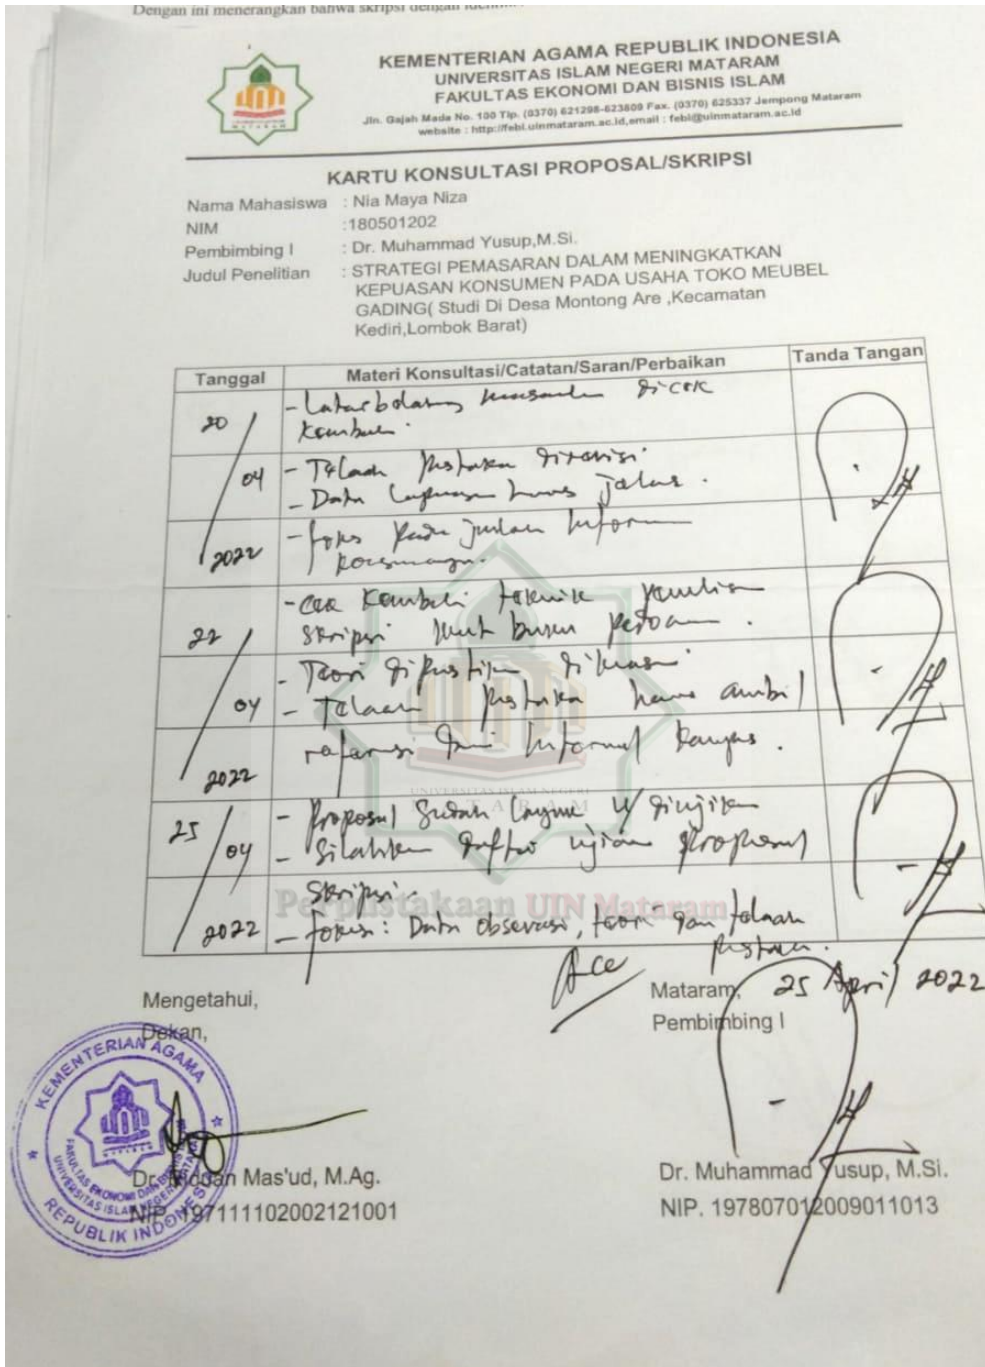 Dengan ini menerangkan bahwa skripsi dengan
KEMENTERIAN AGAMA REPUBLIK INDONESIA
UNIVERSITAS ISLAM NEGERI MATARAM
FAKULTAS EKONOMI DAN BISNIS ISLAM
Jln. Gajah Mada No. 100 Tlp. (0370) 621298-623809 Fax. (0370) 625337 Jempong Mataram
website : http://febi.uinmataram.ac.id,email : febi@uinmataram.ac.id
KARTU KONSULTASI PROPOSAL/SKRIPSI
Nama Mahasiswa : Nia Maya Niza
NIM :180501202
Pembimbing I : Dr. Muhammad Yusup,M.Si.
Judul Penelitian : STRATEGI PEMASARAN DALAM MENINGKATKAN
KEPUASAN KONSUMEN PADA USAHA TOKO MEUBEL
GADING( Studi Di Desa Montong Are ,Kecamatan
Kediri,Lombok Barat)
Tanggal Materi Konsultasi/Catatan/Saran/Perbaikan Tanda Tangan
20 / 04 / 2022
- Latar belakang masalah dicek
kembali.
- Telaah pustaka direvisi
- Data lapangan harus jelas.
- fokus pada
22 / 04 / 2022
- Cek kembali teknik
skripsi buku pedoman.
- Teori
- Telaah pustaka harus ambil
referensi dari kampus.
25 / 04 / 2022
- Proposal sudah layak u/ diujikan
- Silahkan daftar ujian proposal
skripsi.
- fokus: Data observasi, teori dan telaah
pustaka.
UNIVERSITAS ISLAM NEGERI
MATARAM
Perpustakaan UIN Mataram
Acc
Mengetahui,
Dekan,
Mataram, 25 April 2022
Pembimbing I
KEMENTERIAN AGAMA
REPUBLIK INDONESIA
Mas'ud, M.Ag.
NIP. 197111102002121001
Dr. Muhammad Yusup, M.Si.
NIP. 197807012009011013